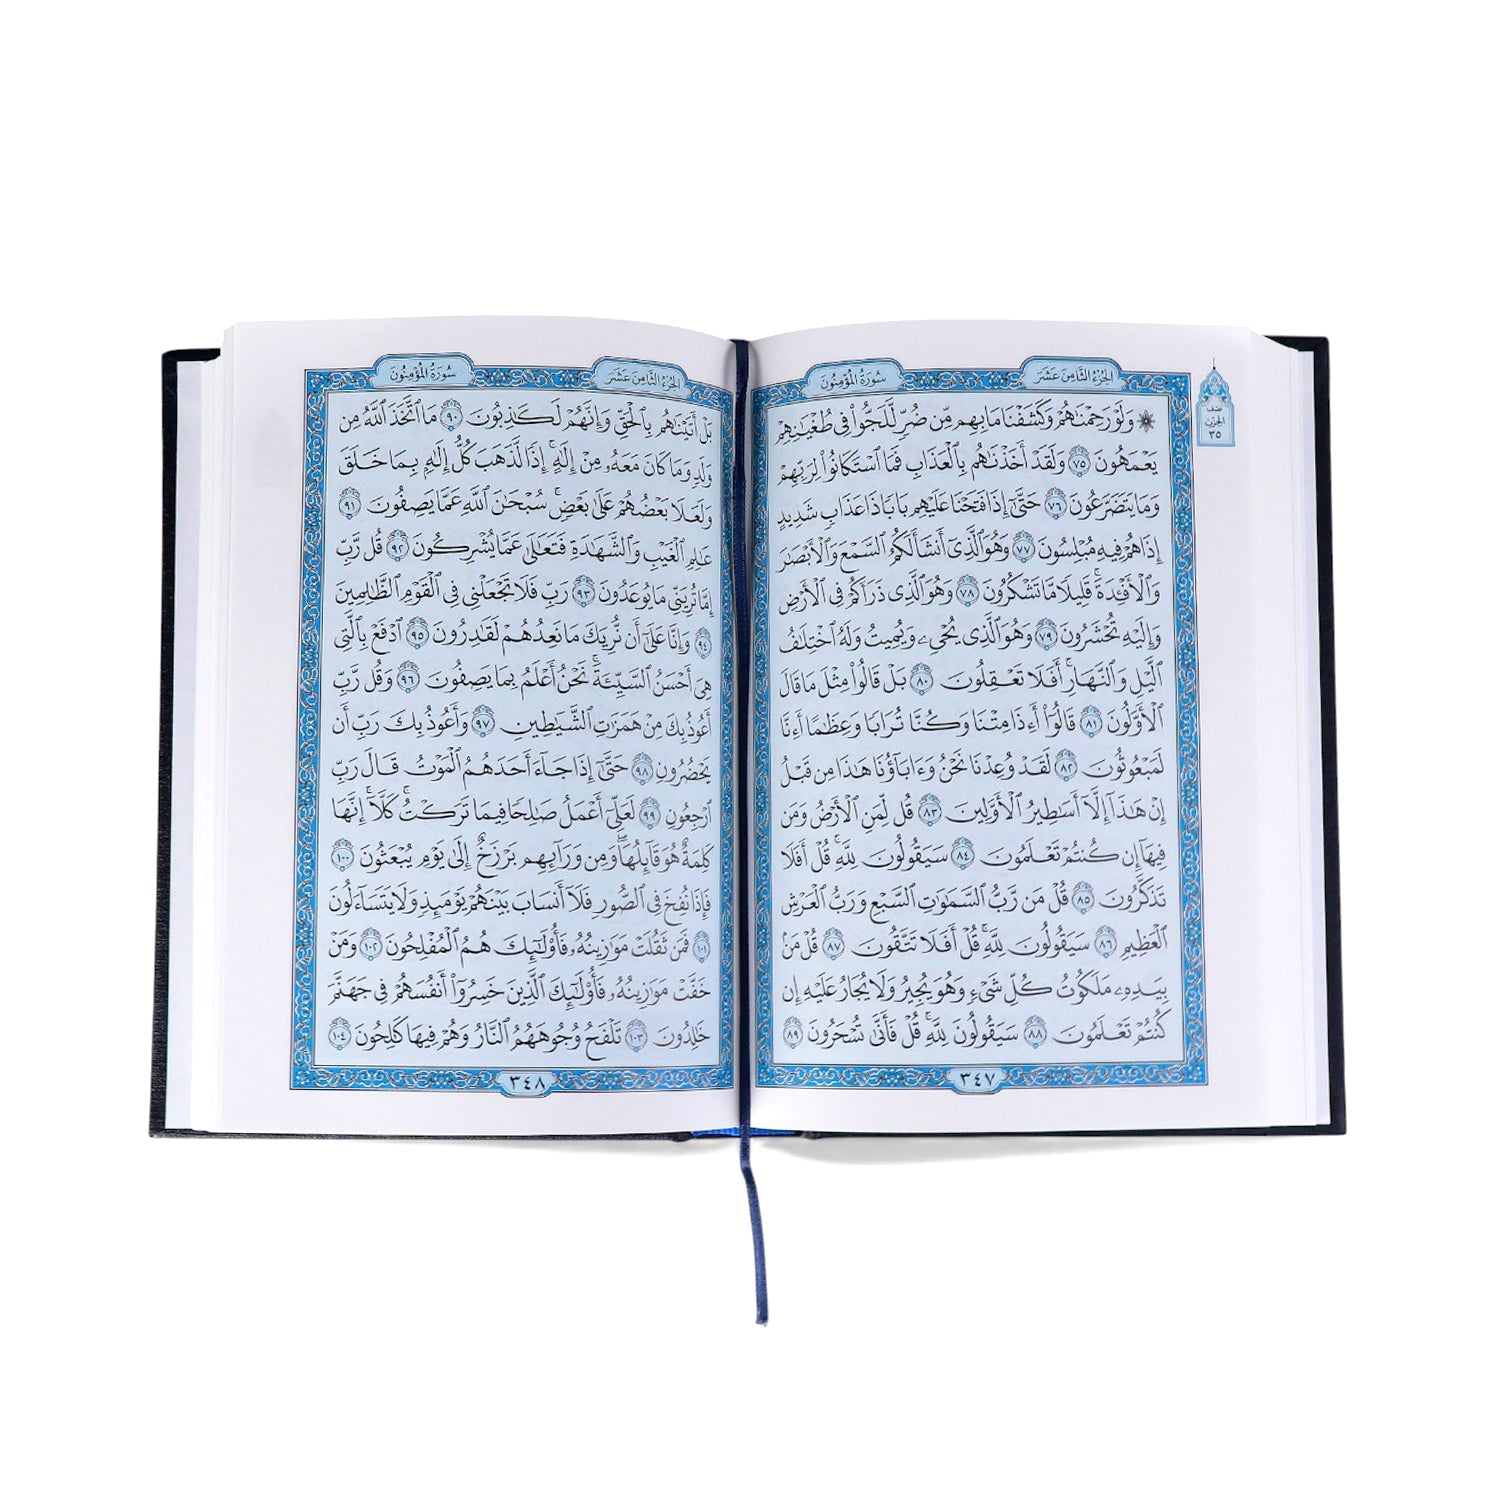 سُورَةُ المُؤْمِنُونَ
الجُزْءُ الثَّامِنَ عَشَرَ
نصف
الحزب
٣٥
۞ وَلَوْ رَحِمْنَٰهُمْ وَكَشَفْنَا مَا بِهِم مِّن ضُرٍّ لَّلَجُّوا۟ فِى طُغْيَٰنِهِمْ
يَعْمَهُونَ ٧٥ وَلَقَدْ أَخَذْنَٰهُم بِٱلْعَذَابِ فَمَا ٱسْتَكَانُوا۟ لِرَبِّهِمْ
وَمَا يَتَضَرَّعُونَ ٧٦ حَتَّىٰٓ إِذَا فَتَحْنَا عَلَيْهِم بَابًا ذَا عَذَابٍ شَدِيدٍ
إِذَا هُمْ فِيهِ مُبْلِسُونَ ٧٧ وَهُوَ ٱلَّذِىٓ أَنشَأَ لَكُمُ ٱلسَّمْعَ وَٱلْأَبْصَٰرَ
وَٱلْأَفْـِٔدَةَ ۚ قَلِيلًا مَّا تَشْكُرُونَ ٧٨ وَهُوَ ٱلَّذِى ذَرَأَكُمْ فِى ٱلْأَرْضِ
وَإِلَيْهِ تُحْشَرُونَ ٧٩ وَهُوَ ٱلَّذِى يُحْىِۦ وَيُمِيتُ وَلَهُ ٱخْتِلَٰفُ
ٱلَّيْلِ وَٱلنَّهَارِ ۚ أَفَلَا تَعْقِلُونَ ٨٠ بَلْ قَالُوا۟ مِثْلَ مَا قَالَ
ٱلْأَوَّلُونَ ٨١ قَالُوٓا۟ أَءِذَا مِتْنَا وَكُنَّا تُرَابًا وَعِظَٰمًا أَءِنَّا
لَمَبْعُوثُونَ ٨٢ لَقَدْ وُعِدْنَا نَحْنُ وَءَابَآؤُنَا هَٰذَا مِن قَبْلُ
إِنْ هَٰذَآ إِلَّآ أَسَٰطِيرُ ٱلْأَوَّلِينَ ٨٣ قُل لِّمَنِ ٱلْأَرْضُ وَمَن
فِيهَآ إِن كُنتُمْ تَعْلَمُونَ ٨٤ سَيَقُولُونَ لِلَّهِ ۚ قُلْ أَفَلَا
تَذَكَّرُونَ ٨٥ قُلْ مَن رَّبُّ ٱلسَّمَٰوَٰتِ ٱلسَّبْعِ وَرَبُّ ٱلْعَرْشِ
ٱلْعَظِيمِ ٨٦ سَيَقُولُونَ لِلَّهِ ۚ قُلْ أَفَلَا تَتَّقُونَ ٨٧ قُلْ مَنۢ
بِيَدِهِۦ مَلَكُوتُ كُلِّ شَىْءٍ وَهُوَ يُجِيرُ وَلَا يُجَارُ عَلَيْهِ إِن
كُنتُمْ تَعْلَمُونَ ٨٨ سَيَقُولُونَ لِلَّهِ ۚ قُلْ فَأَنَّىٰ تُسْحَرُونَ ٨٩
٣٤٧
سُورَةُ المُؤْمِنُونَ
الجُزْءُ الثَّامِنَ عَشَرَ
بَلْ أَتَيْنَٰهُم بِٱلْحَقِّ وَإِنَّهُمْ لَكَٰذِبُونَ ٩٠ مَا ٱتَّخَذَ ٱللَّهُ مِن
وَلَدٍ وَمَا كَانَ مَعَهُۥ مِنْ إِلَٰهٍ ۚ إِذًا لَّذَهَبَ كُلُّ إِلَٰهٍۭ بِمَا خَلَقَ
وَلَعَلَا بَعْضُهُمْ عَلَىٰ بَعْضٍ ۚ سُبْحَٰنَ ٱللَّهِ عَمَّا يَصِفُونَ ٩١
عَٰلِمِ ٱلْغَيْبِ وَٱلشَّهَٰدَةِ فَتَعَٰلَىٰ عَمَّا يُشْرِكُونَ ٩٢ قُل رَّبِّ
إِمَّا تُرِيَنِّى مَا يُوعَدُونَ ٩٣ رَبِّ فَلَا تَجْعَلْنِى فِى ٱلْقَوْمِ ٱلظَّٰلِمِينَ
٩٤ وَإِنَّا عَلَىٰٓ أَن نُّرِيَكَ مَا نَعِدُهُمْ لَقَٰدِرُونَ ٩٥ ٱدْفَعْ بِٱلَّتِى
هِىَ أَحْسَنُ ٱلسَّيِّئَةَ ۚ نَحْنُ أَعْلَمُ بِمَا يَصِفُونَ ٩٦ وَقُل رَّبِّ
أَعُوذُ بِكَ مِنْ هَمَزَٰتِ ٱلشَّيَٰطِينِ ٩٧ وَأَعُوذُ بِكَ رَبِّ أَن
يَحْضُرُونِ ٩٨ حَتَّىٰٓ إِذَا جَآءَ أَحَدَهُمُ ٱلْمَوْتُ قَالَ رَبِّ
ٱرْجِعُونِ ٩٩ لَعَلِّىٓ أَعْمَلُ صَٰلِحًا فِيمَا تَرَكْتُ ۚ كَلَّآ ۚ إِنَّهَا
كَلِمَةٌ هُوَ قَآئِلُهَا ۖ وَمِن وَرَآئِهِم بَرْزَخٌ إِلَىٰ يَوْمِ يُبْعَثُونَ ١٠٠
فَإِذَا نُفِخَ فِى ٱلصُّورِ فَلَآ أَنسَابَ بَيْنَهُمْ يَوْمَئِذٍ وَلَا يَتَسَآءَلُونَ
١٠١ فَمَن ثَقُلَتْ مَوَٰزِينُهُۥ فَأُو۟لَٰٓئِكَ هُمُ ٱلْمُفْلِحُونَ ١٠٢ وَمَنْ
خَفَّتْ مَوَٰزِينُهُۥ فَأُو۟لَٰٓئِكَ ٱلَّذِينَ خَسِرُوٓا۟ أَنفُسَهُمْ فِى جَهَنَّمَ
خَٰلِدُونَ ١٠٣ تَلْفَحُ وُجُوهَهُمُ ٱلنَّارُ وَهُمْ فِيهَا كَٰلِحُونَ ١٠٤
٣٤٨